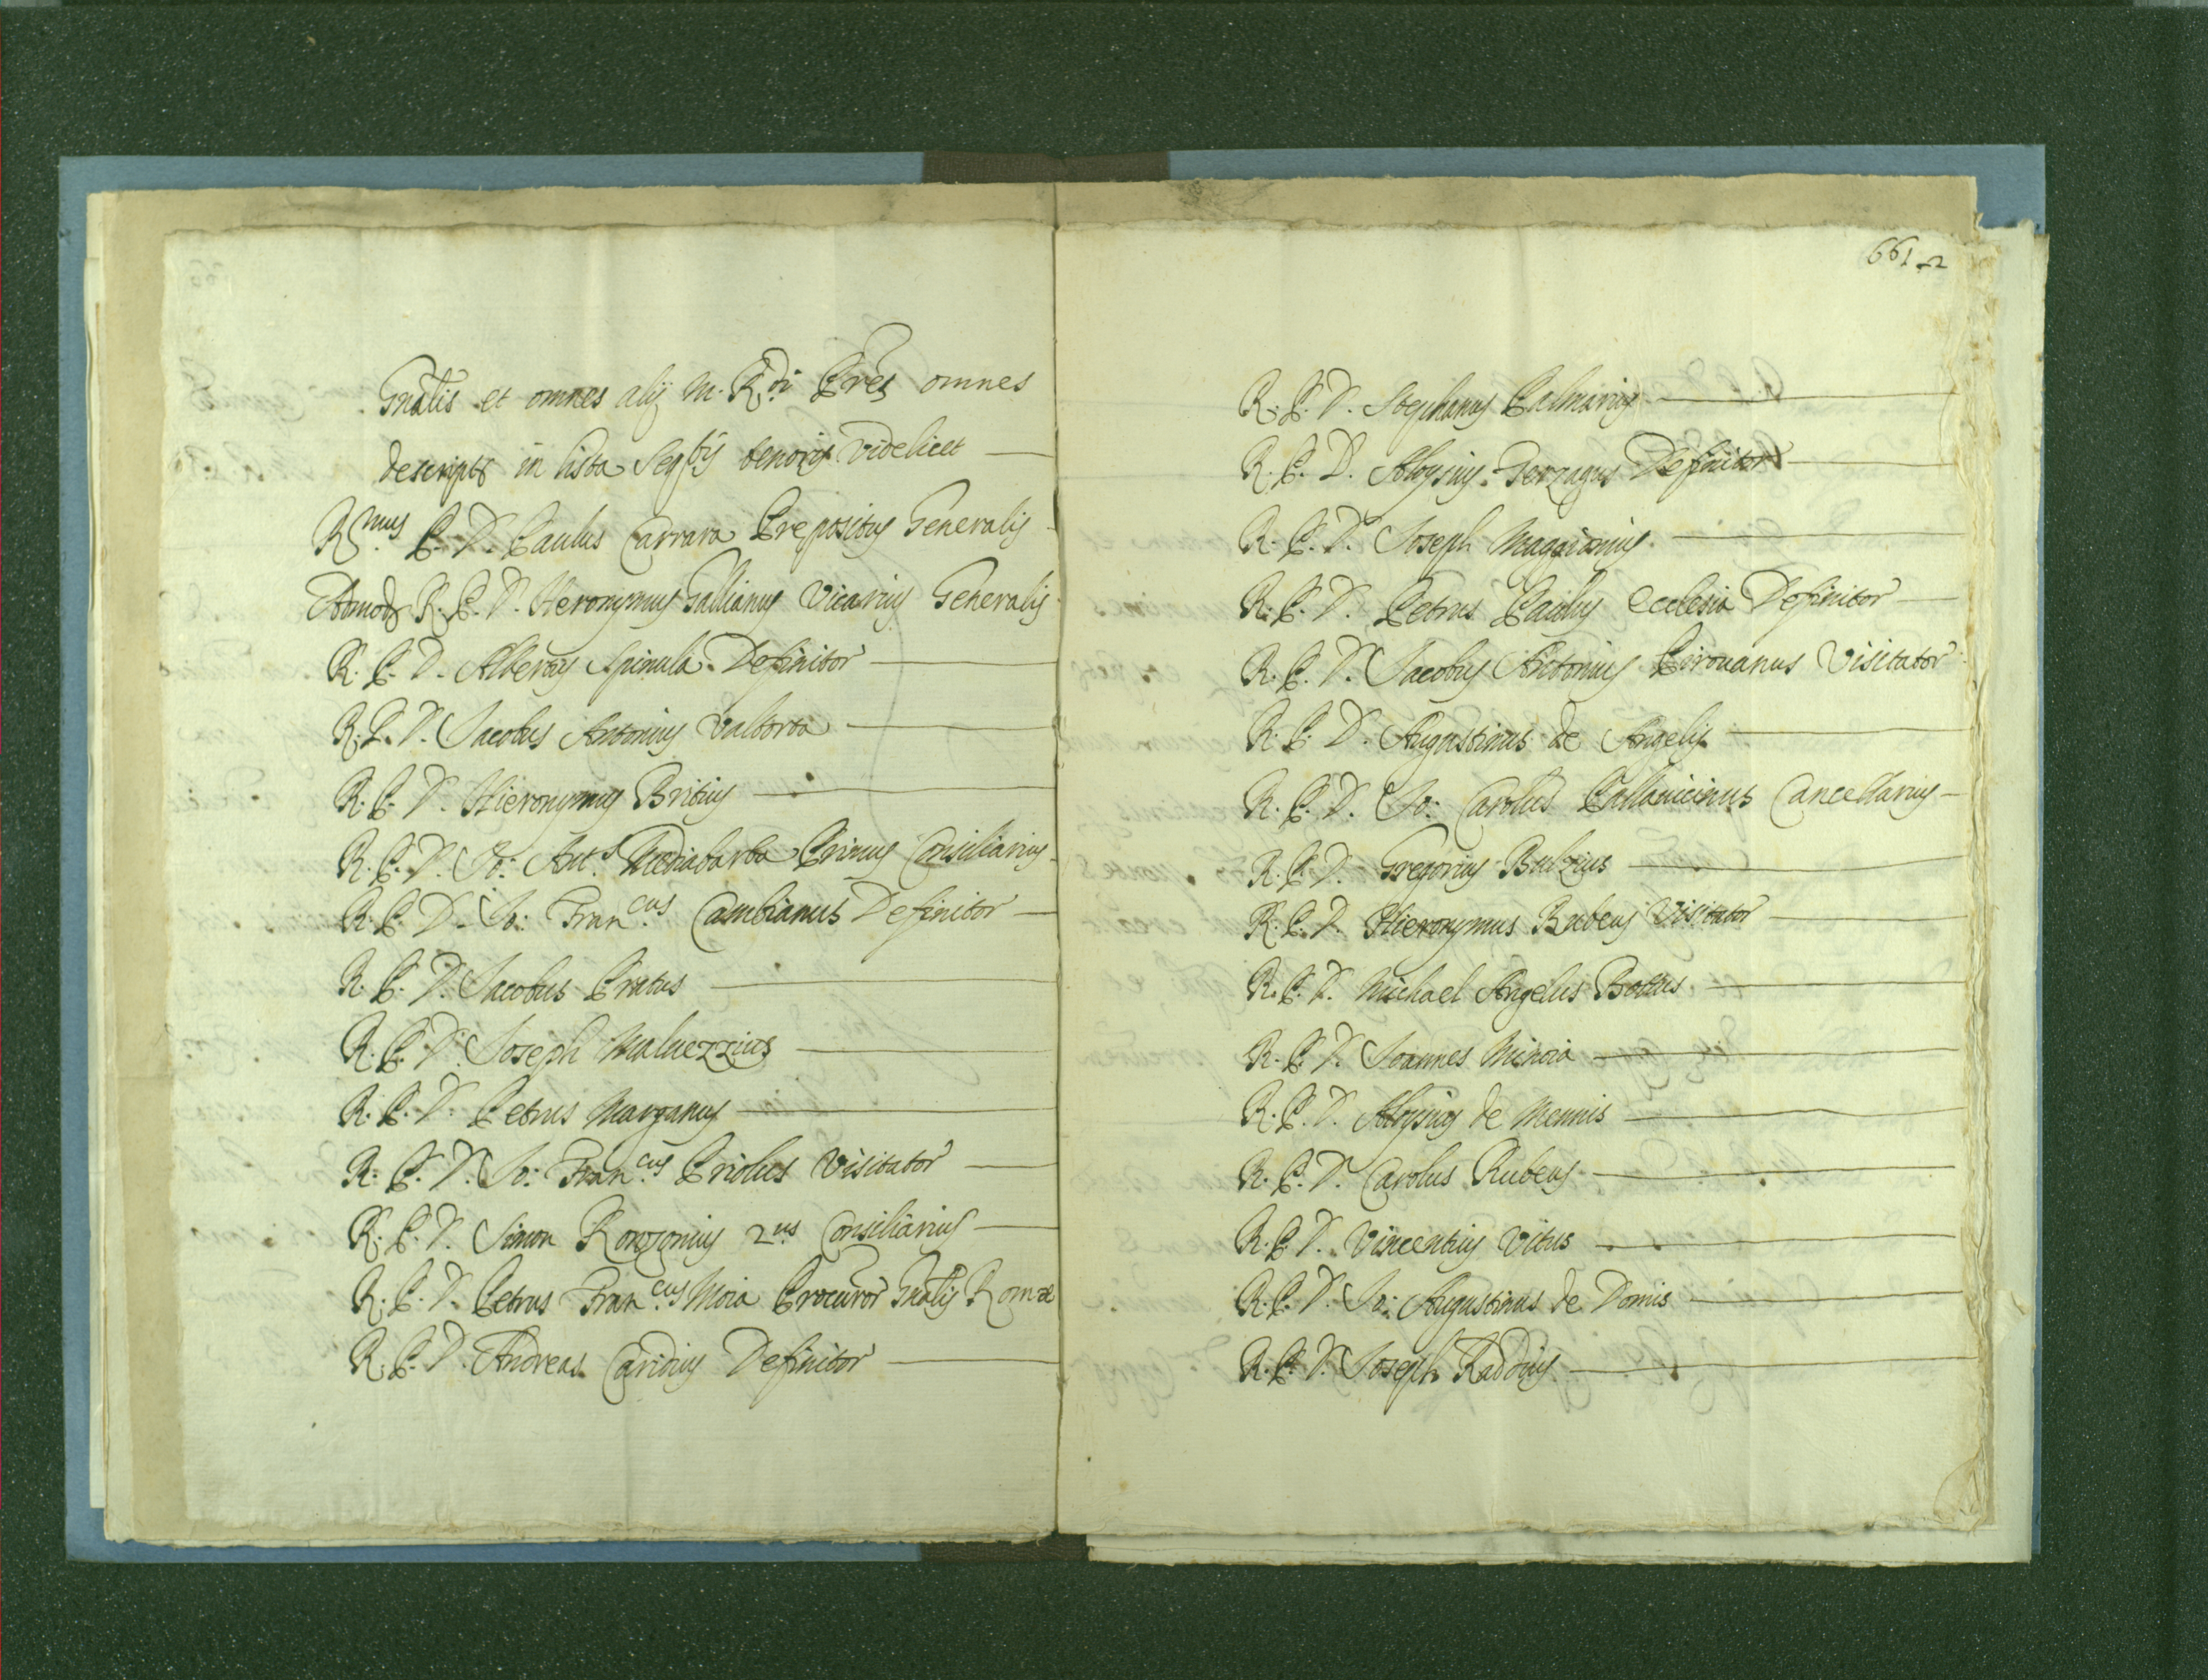 Gnalis et omnes alij M. R.di Pres omnes
descripti in lista seq.tis tenoris videlicet
R.mus P. D. Paulus Carrara Prepositus Generalis
Admod. R. P. D. Hieronymus Gallianus Vicarius Generalis
R. P. D. Albertus Spinula Definitor
R. P. D. Jacobus Antonius Valtorta
R. P. D. Hieronymus Britius
R. P. D. Jo: Ant.s Mediabarba Primus Consiliarius
R. P. D. Jo: Fran.cus Cambianus Definitor
R. P. D. Jacobus Pratus
R. P. D. Joseph Maluezzius
R. P. D. Petrus Marganus
R. P. D. Jo: Fran.cus Priolus Visitator
R. P. D. Simon Ronzonius 2.us Consiliarius
R. P. D. Petrus Fran.cus Moia Procuror Gnalis Romæ
R. P. D. Andreas Caridius Definitor
661-2
R. P. D. Stephanus Palmarius
R. P. D. Aloysius Terzagus Definitor
R. P. D. Joseph Maggionius
R. P. D. Petrus Paulus Ecclesia Definitor
R. P. D. Jacobus Antonius Pirouanus Visitator
R. P. D. Augustinus de Angelis
R. P. D. Jo: Carolus Pallauicinus Cancellarius
R. P. D. Gregorius Bulzius
R. P. D. Hieronymus Rubeus Visitator
R. P. D. Michael Angelus Bottus
R. P. D. Joannes Minoia
R. P. D. Aloysius de Mennis
R. P. D. Carolus Rubeus
R. P. D. Vincentius Vitus
R. P. D. Jo: Augustinus de Domis
R. P. D. Joseph Raddius